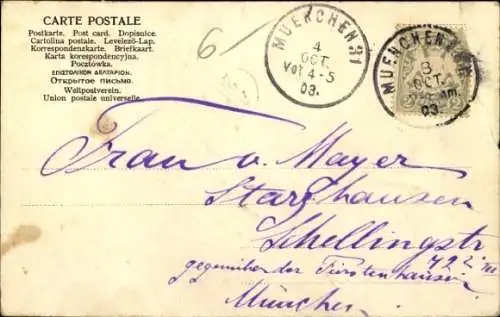 CARTE POSTALE
Postkarte. Post card. Dopisnice.
Cartolina postale. Levelező-Lap.
Korrespondenzkarte. Briefkaart.
Karta korespondencyjna.
Pocztówka.
ΕΠΙΣΤΟΛΙΚΟΝ ΔΕΛΤΑΡΙΟΝ.
Открытое письмо.
Weltpostverein.
Union postale universelle.
6 –
MUENCHEN 31
4
OCT.
Vor 4-5
03.
MUENCHEN
8
OCT.
03
Frau v. Mayer
Starzhausen
Schellingstr
72 II
gegenüber der
München